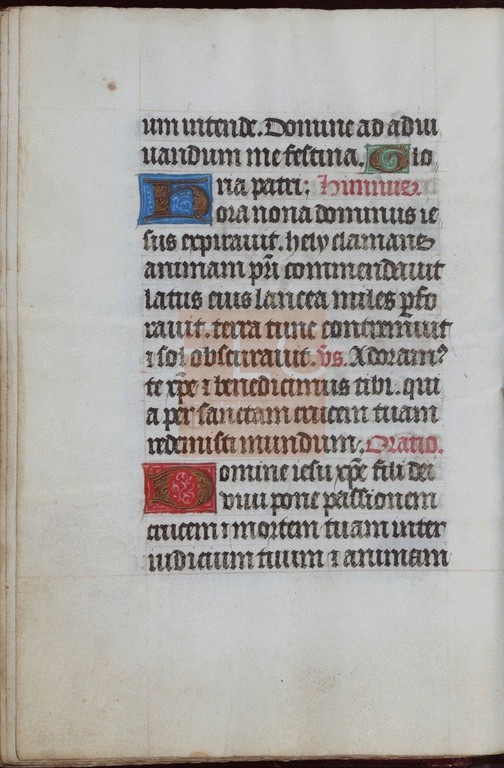 um intende. Domine ad adiu
uandum me festina. Glo
ria patri: Himnus
Hora nona dominus ie
sus expirauit. hely clamans
animam pr̄i commendauit
latus eius lancea miles ꝑfo
rauit. terra tunc contremuit
⁊ sol obscurauit. v̄s. Adoram⁹
te xp̄e ⁊ benedicimus tibi. qui
a per sanctam crucem tuam
redemisti mundum. Oratio.
Domine iesu xp̄e fili dei
viui pone passionem
crucem ⁊ mortem tuam inter
iudicium tuum ⁊ animam